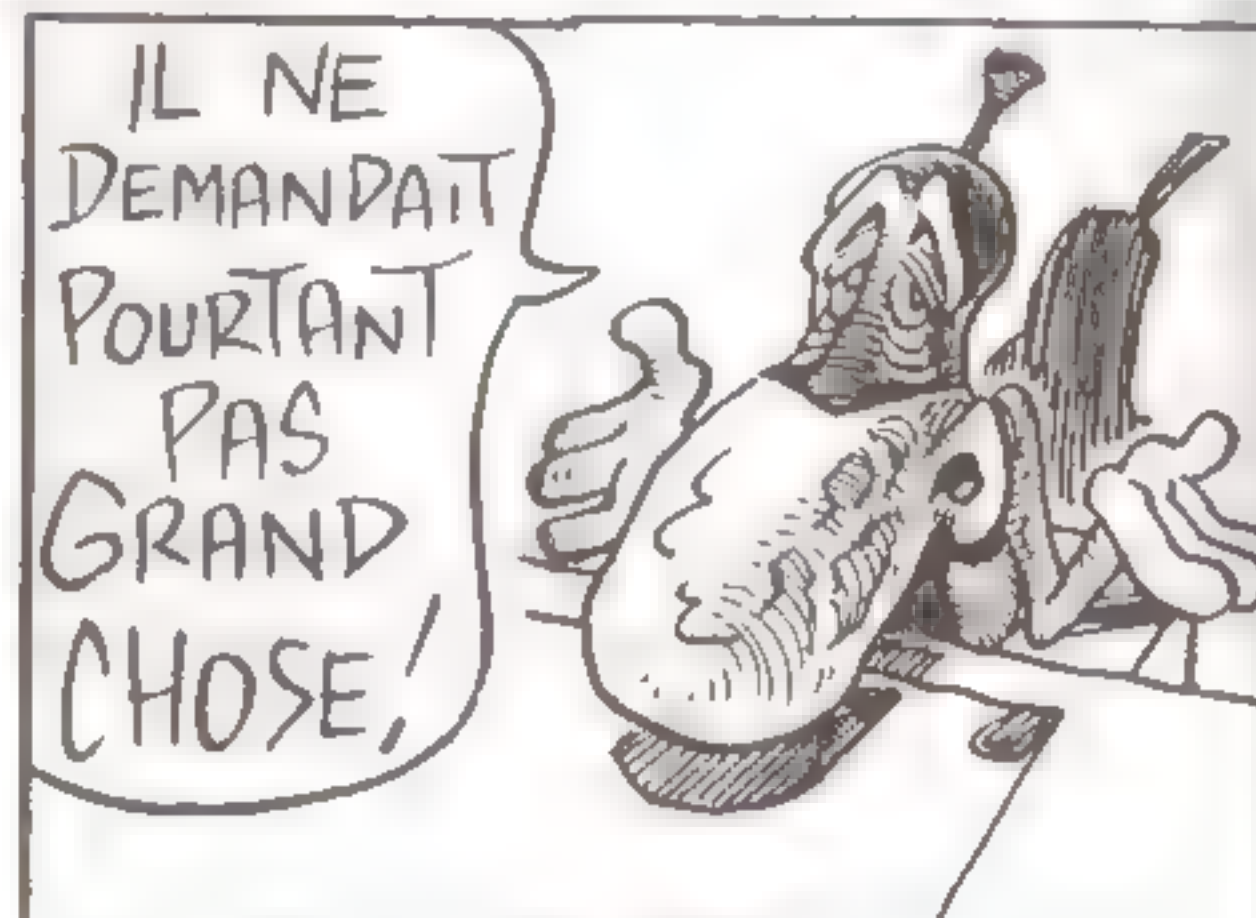 IL NE
DEMANDAIT
POURTANT
PAS
GRAND
CHOSE!